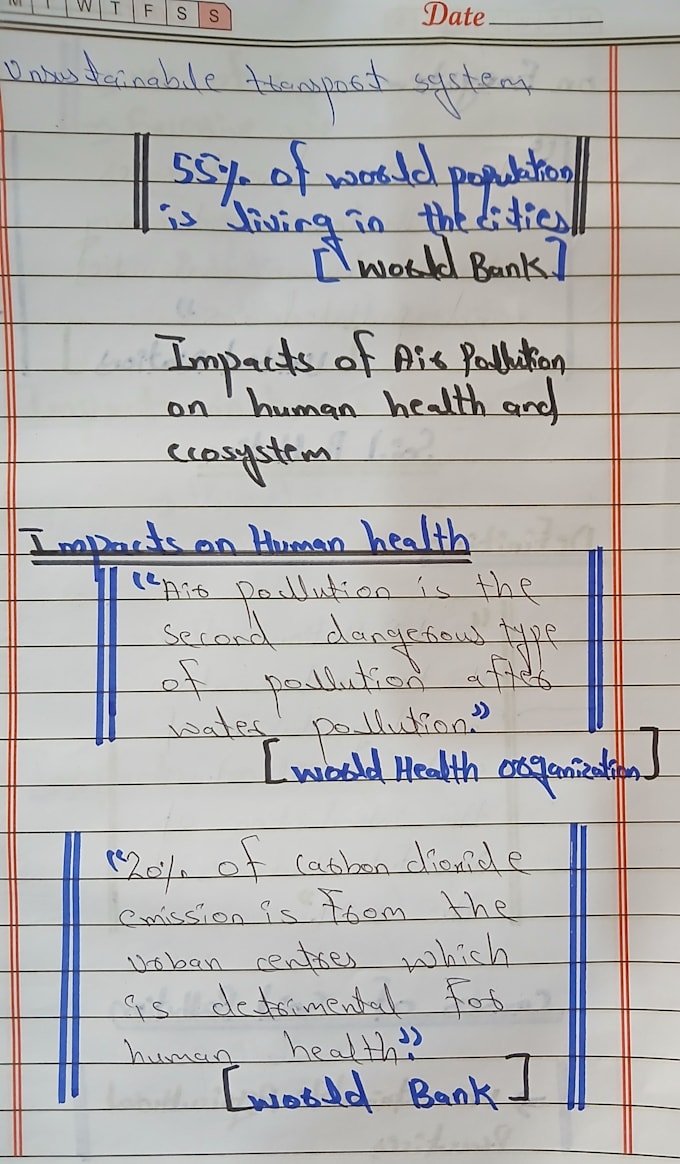 W T F S S
Date
Unsustainable transport system
55% of world population
is living in the cities
[World Bank]
Impacts of Air Pollution
on human health and
ecosystem
Impacts on Human health
"Air pollution is the
second dangerous type
of pollution after
water pollution."
[World Health organization]
"20% of carbon dioxide
emission is from the
urban centres which
is detrimental for
human health."
[World Bank]